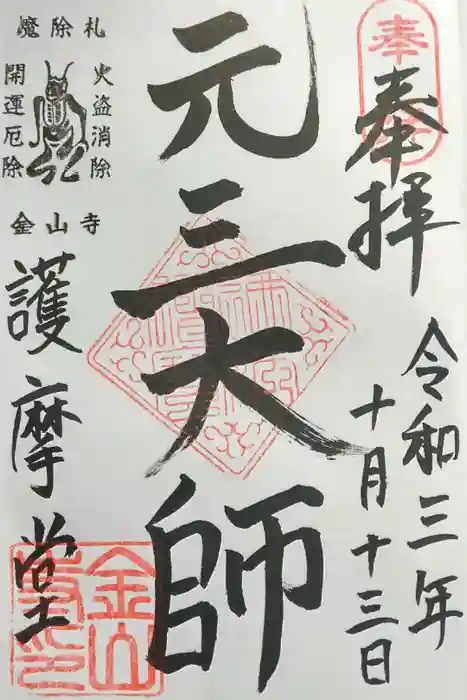 奉拝
令和三年
十月十三日
元三大師
魔除札
火盗消除
開運厄除
金山寺
護摩堂
奉
金山
寺印